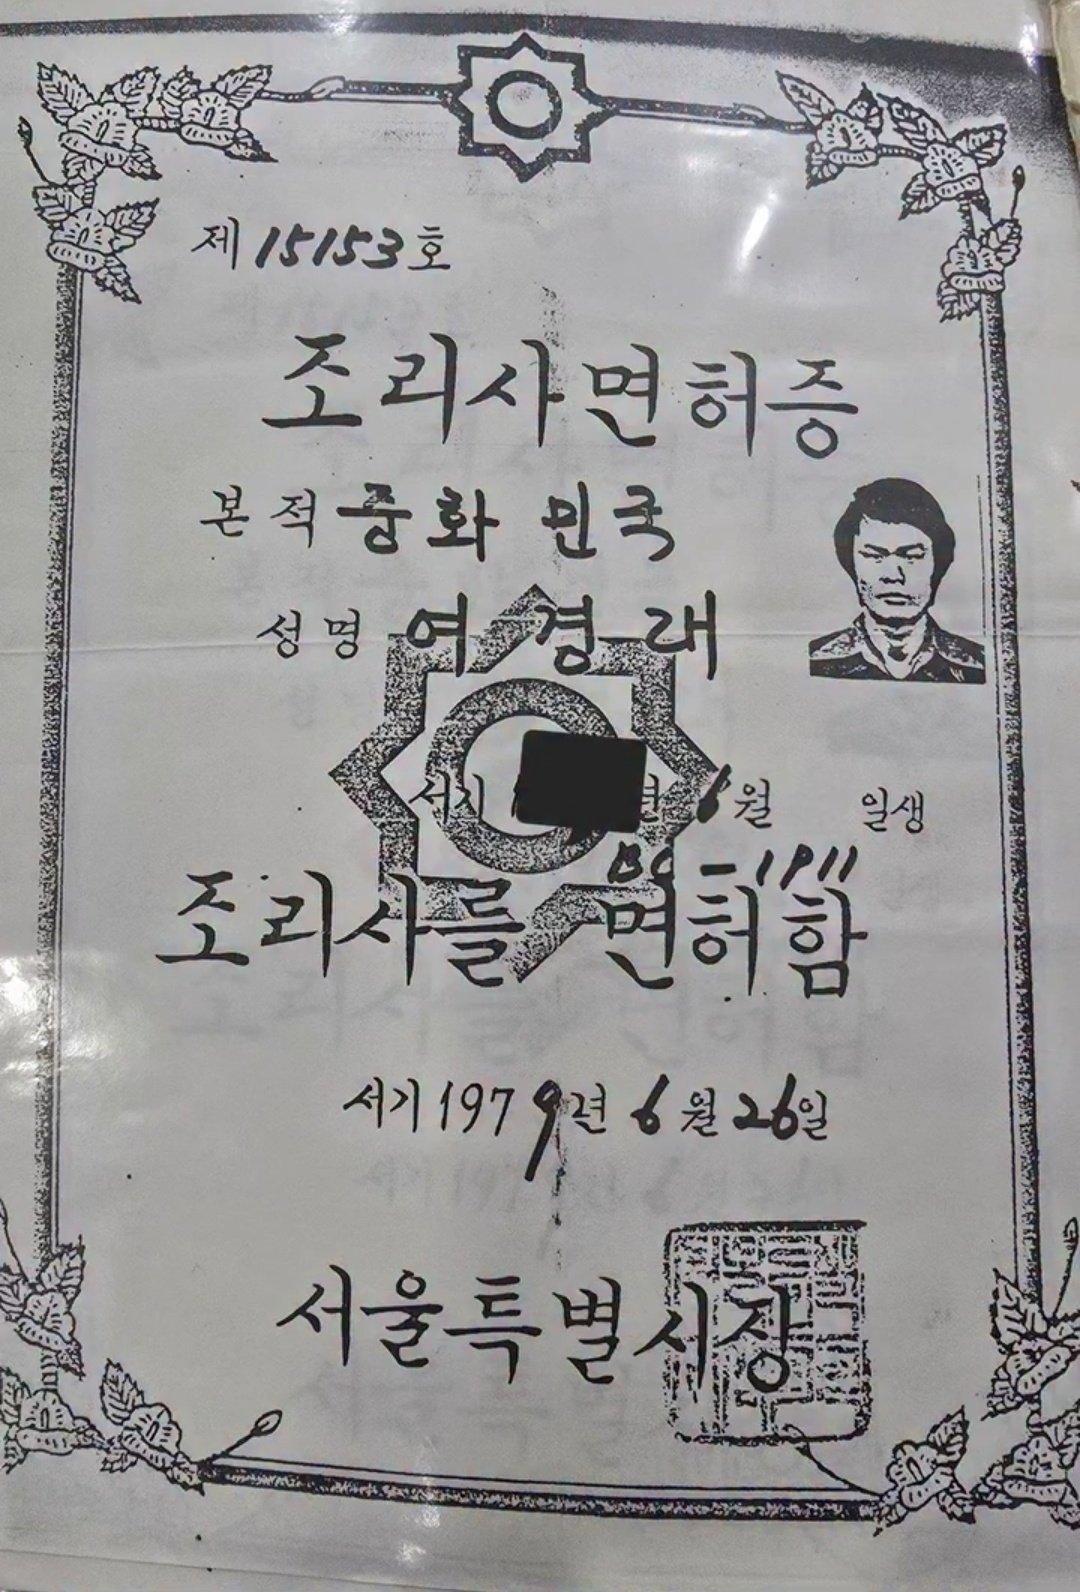 제 15153 호
조리사면허증
본 적 중화 민국
성명 여경래
서기 년 6월 일생
조리사를 면허함
서기 1979년 6월 26일
서울특별시장